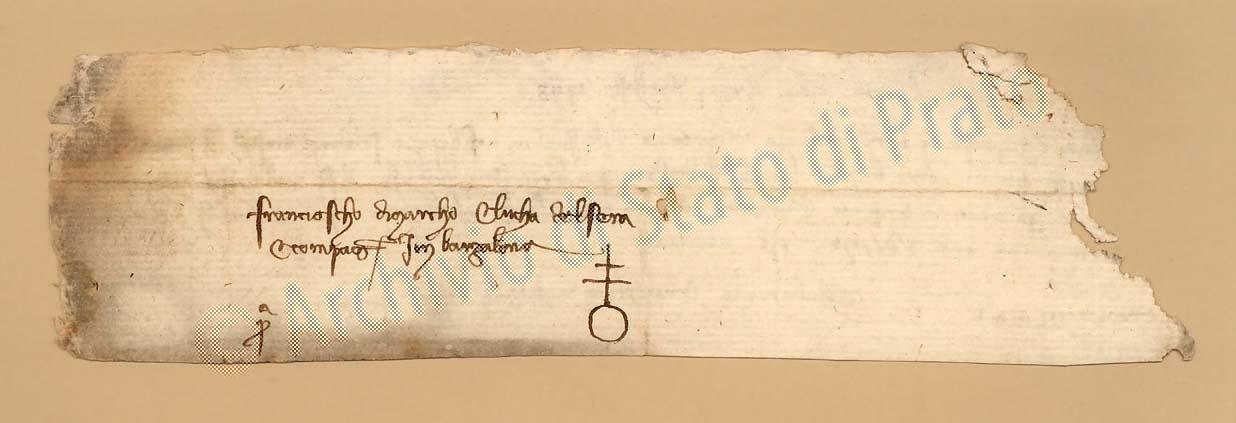 francioscho dimarcho e lucha del sera
e compagni in barzalona
pª
© Archivio di Stato di Prato